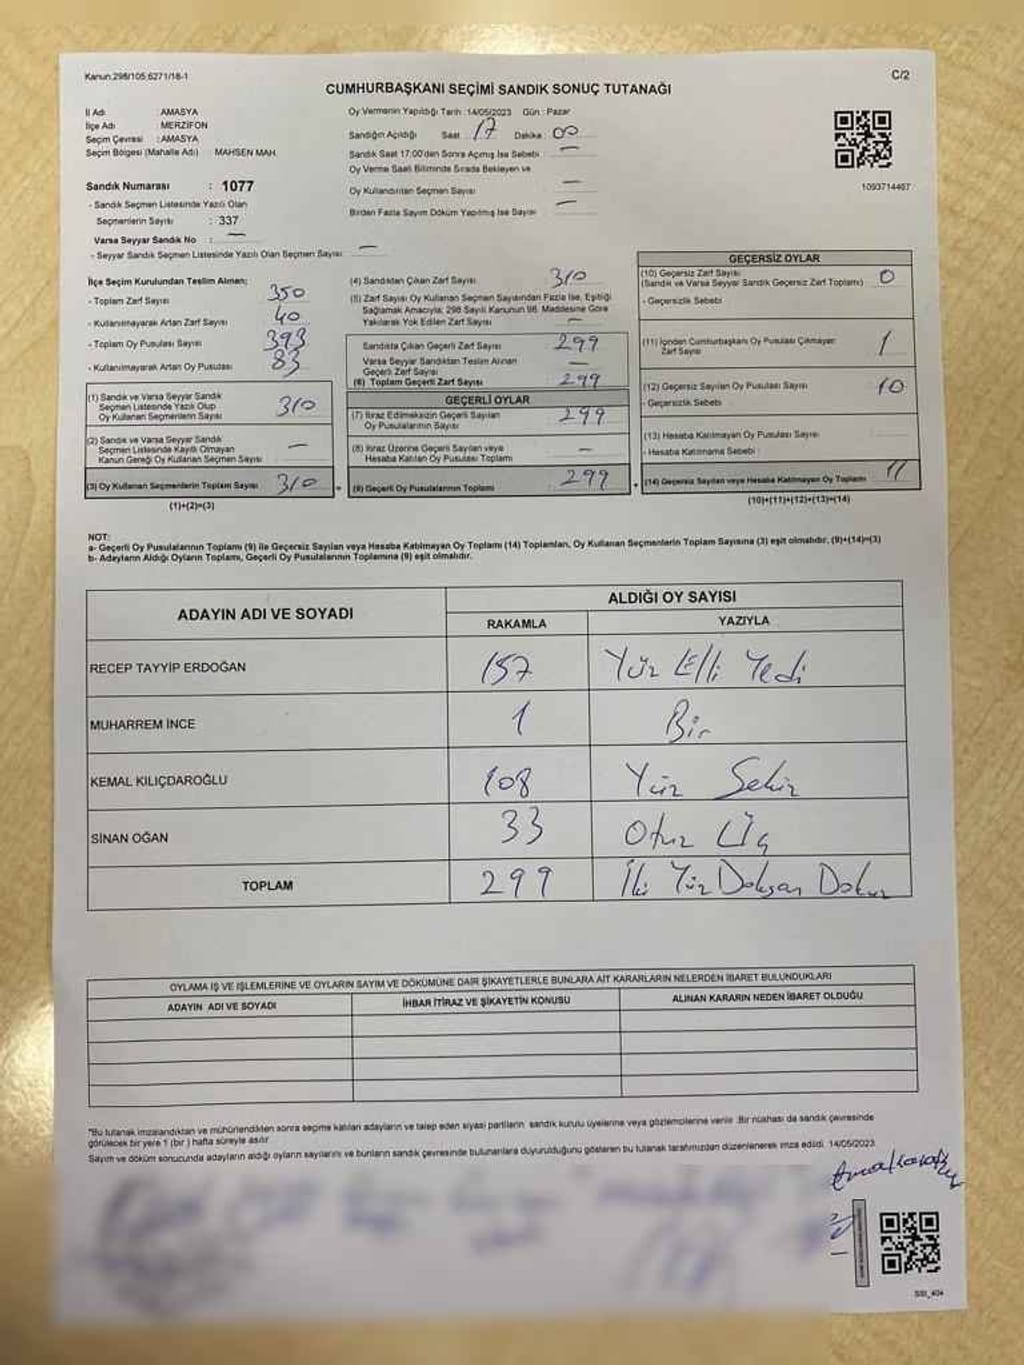 Kanun:298/105,6271/18-1
C/2
CUMHURBAŞKANI SEÇİMİ SANDIK SONUÇ TUTANAĞI
İl Adı : AMASYA
İlçe Adı : MERZİFON
Seçim Çevresi : AMASYA
Seçim Bölgesi (Mahalle Adı) : MAHSEN MAH.
Sandık Numarası : 1077
- Sandık Seçmen Listesinde Yazılı Olan
Seçmenlerin Sayısı : 337
Varsa Seyyar Sandık No : —
- Seyyar Sandık Seçmen Listesinde Yazılı Olan Seçmen Sayısı : —
Oy Vermenin Yapıldığı Tarih : 14/05/2023 Gün : Pazar
Sandığın Açıldığı Saat : 17 Dakika : 00
Sandık Saat 17:00'den Sonra Açmış İse Sebebi : —
Oy Verme Saati Bitiminde Sırada Bekleyen ve
Oy Kullandırılan Seçmen Sayısı : —
Birden Fazla Sayım Döküm Yapılmış İse Sayısı : —
1093714467
İlçe Seçim Kurulundan Teslim Alınan;
- Toplam Zarf Sayısı 350
- Kullanılmayarak Artan Zarf Sayısı 40
- Toplam Oy Pusulası Sayısı 393
- Kullanılmayarak Artan Oy Pusulası 83
(1) Sandık ve Varsa Seyyar Sandık
Seçmen Listesinde Yazılı Olup
Oy Kullanan Seçmenlerin Sayısı 310
(2) Sandık ve Varsa Seyyar Sandık
Seçmen Listesinde Kayıtlı Olmayan
Kanun Gereği Oy Kullanan Seçmen Sayısı —
(3) Oy Kullanan Seçmenlerin Toplam Sayısı 310
(1)+(2)=(3)
(4) Sandıktan Çıkan Zarf Sayısı 310
(5) Zarf Sayısı Oy Kullanan Seçmen Sayısından Fazla İse, Eşitliği
Sağlamak Amacıyla; 298 Sayılı Kanunun 98. Maddesine Göre
Yakılarak Yok Edilen Zarf Sayısı —
Sandıkta Çıkan Geçerli Zarf Sayısı 299
Varsa Seyyar Sandıktan Teslim Alınan
Geçerli Zarf Sayısı —
(6) Toplam Geçerli Zarf Sayısı 299
GEÇERLİ OYLAR
(7) İtiraz Edilmeksizin Geçerli Sayılan
Oy Pusulalarının Sayısı 299
(8) İtiraz Üzerine Geçerli Sayılan veya
Hesaba Katılan Oy Pusulası Toplamı —
(9) Geçerli Oy Pusulalarının Toplamı 299
GEÇERSİZ OYLAR
(10) Geçersiz Zarf Sayısı
(Sandık ve Varsa Seyyar Sandık Geçersiz Zarf Toplamı) 0
- Geçersizlik Sebebi
(11) İçinden Cumhurbaşkanı Oy Pusulası Çıkmayan
Zarf Sayısı 1
(12) Geçersiz Sayılan Oy Pusulası Sayısı 10
- Geçersizlik Sebebi
(13) Hesaba Katılmayan Oy Pusulası Sayısı
- Hesaba Katılmama Sebebi
(14) Geçersiz Sayılan veya Hesaba Katılmayan Oy Toplamı 11
(10)+(11)+(12)+(13)=(14)
NOT:
a- Geçerli Oy Pusulalarının Toplamı (9) ile Geçersiz Sayılan veya Hesaba Katılmayan Oy Toplamı (14) Toplamları, Oy Kullanan Seçmenlerin Toplam Sayısına (3) eşit olmalıdır. (9)+(14)=(3)
b- Adayların Aldığı Oyların Toplamı, Geçerli Oy Pusulalarının Toplamına (9) eşit olmalıdır.
ADAYIN ADI VE SOYADI ALDIĞI OY SAYISI
RAKAMLA YAZIYLA
RECEP TAYYİP ERDOĞAN 157 Yüz Elli Yedi
MUHARREM İNCE 1 Bir
KEMAL KILIÇDAROĞLU 108 Yüz Sekiz
SİNAN OĞAN 33 Otuz Üç
TOPLAM 299 İki Yüz Doksan Dokuz
OYLAMA İŞ VE İŞLEMLERİNE VE OYLARIN SAYIM VE DÖKÜMÜNE DAİR ŞİKAYETLERLE BUNLARA AİT KARARLARIN NELERDEN İBARET BULUNDUKLARI
ADAYIN ADI VE SOYADI İHBAR İTİRAZ VE ŞİKAYETİN KONUSU ALINAN KARARIN NEDEN İBARET OLDUĞU
"Bu tutanak imzalandıktan ve mühürlendikten sonra seçime katılan adayların ve talep eden siyasi partilerin sandık kurulu üyelerine veya gözlemcilerine verilir. Bir nüshası da sandık çevresinde
görülecek bir yere 1 (bir) hafta süreyle asılır
Sayım ve döküm sonucunda adayların aldığı oyların sayılarını ve bunların sandık çevresinde bulunanlara duyurulduğunu gösteren bu tutanak tarafımızdan düzenlenerek imza edildi. 14/05/2023